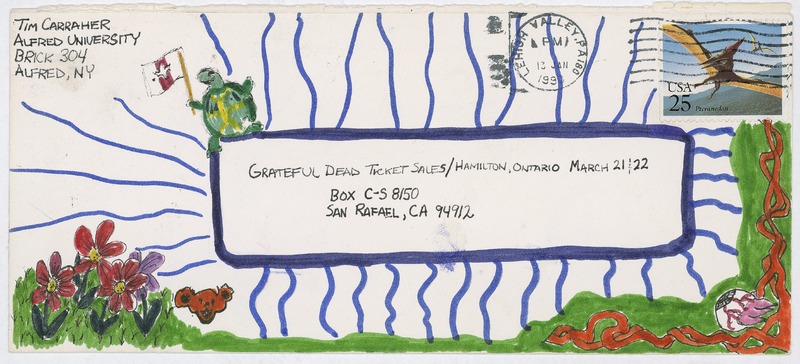 TIM CARRAHER
ALFRED UNIVERSITY
BRICK 304
ALFRED, NY
LEHIGH VALLEY, PA 180
PM
13 JAN
USA
25 Pteranodon
GRATEFUL DEAD TICKET SALES/HAMILTON, ONTARIO MARCH 21 | 22
BOX C-S 8150
SAN RAFAEL, CA 94912